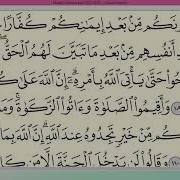 دُّونَكُم مِّنۢ بَعْدِ إِيمَٰنِكُمْ كُفَّارًا
أَنفُسِهِم مِّنۢ بَعْدِ مَا تَبَيَّنَ لَهُمُ ٱلْحَقُّ
حُوا۟ حَتَّىٰ يَأْتِىَ ٱللَّهُ بِأَمْرِهِۦٓ إِنَّ ٱللَّهَ عَلَىٰ
وَأَقِيمُوا۟ ٱلصَّلَوٰةَ وَءَاتُوا۟ ٱلزَّكَوٰةَ وَمَا
كُم مِّنْ خَيْرٍ تَجِدُوهُ عِندَ ٱللَّهِ إِنَّ ٱللَّهَ بِمَا
وَقَالُوا۟ لَن يَدْخُلَ ٱلْجَنَّةَ إِلَّا مَن كَا